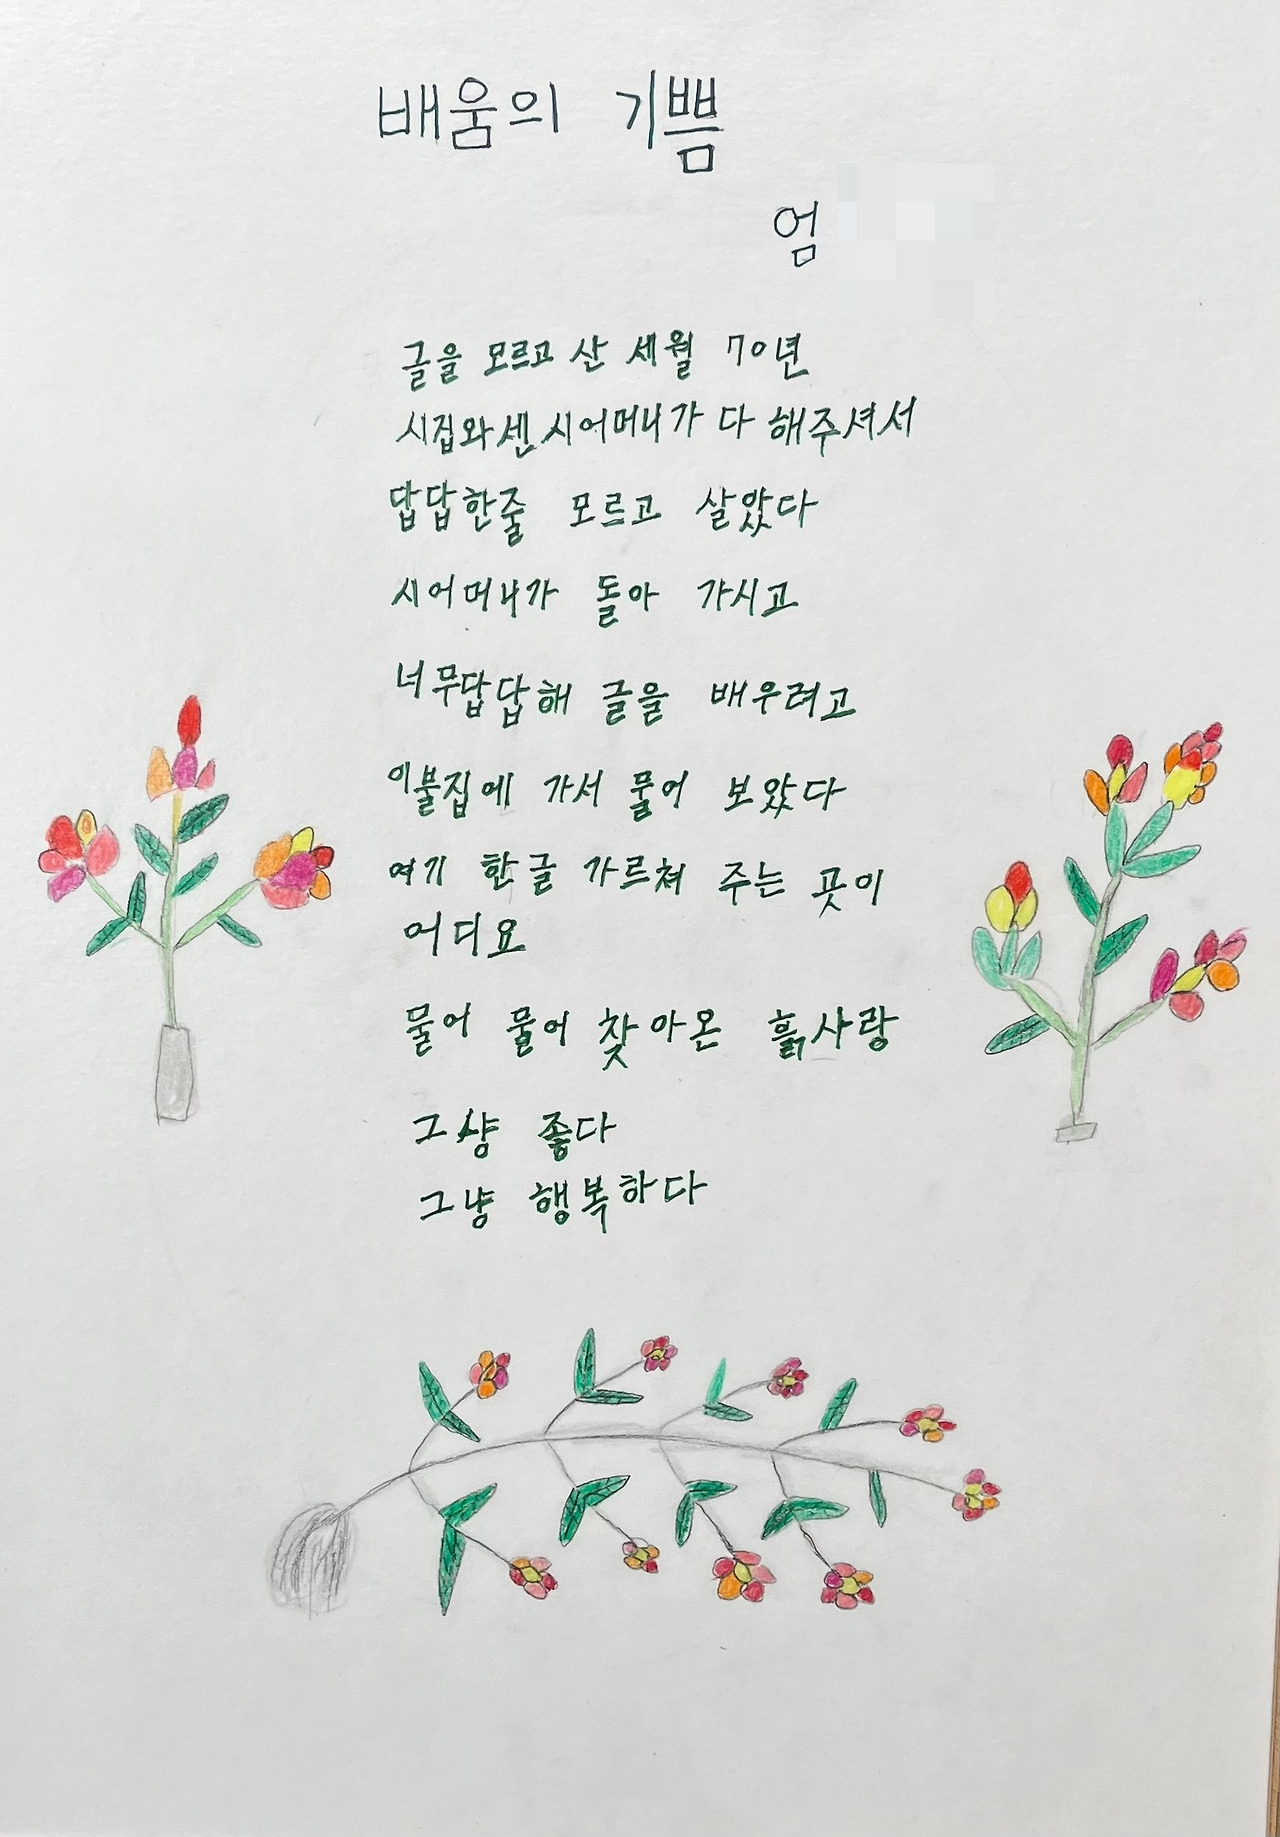 배움의 기쁨
엄
글을 모르고 산 세월 70년
시집와센 시어머니가 다 해주셔서
답답한줄 모르고 살았다
시어머니가 돌아 가시고
너무답답해 글을 배우려고
이불집에 가서 물어 보았다
여기 한글 가르쳐 주는 곳이
어디요
물어 물어 찾아온 흙사랑
그냥 좋다
그냥 행복하다